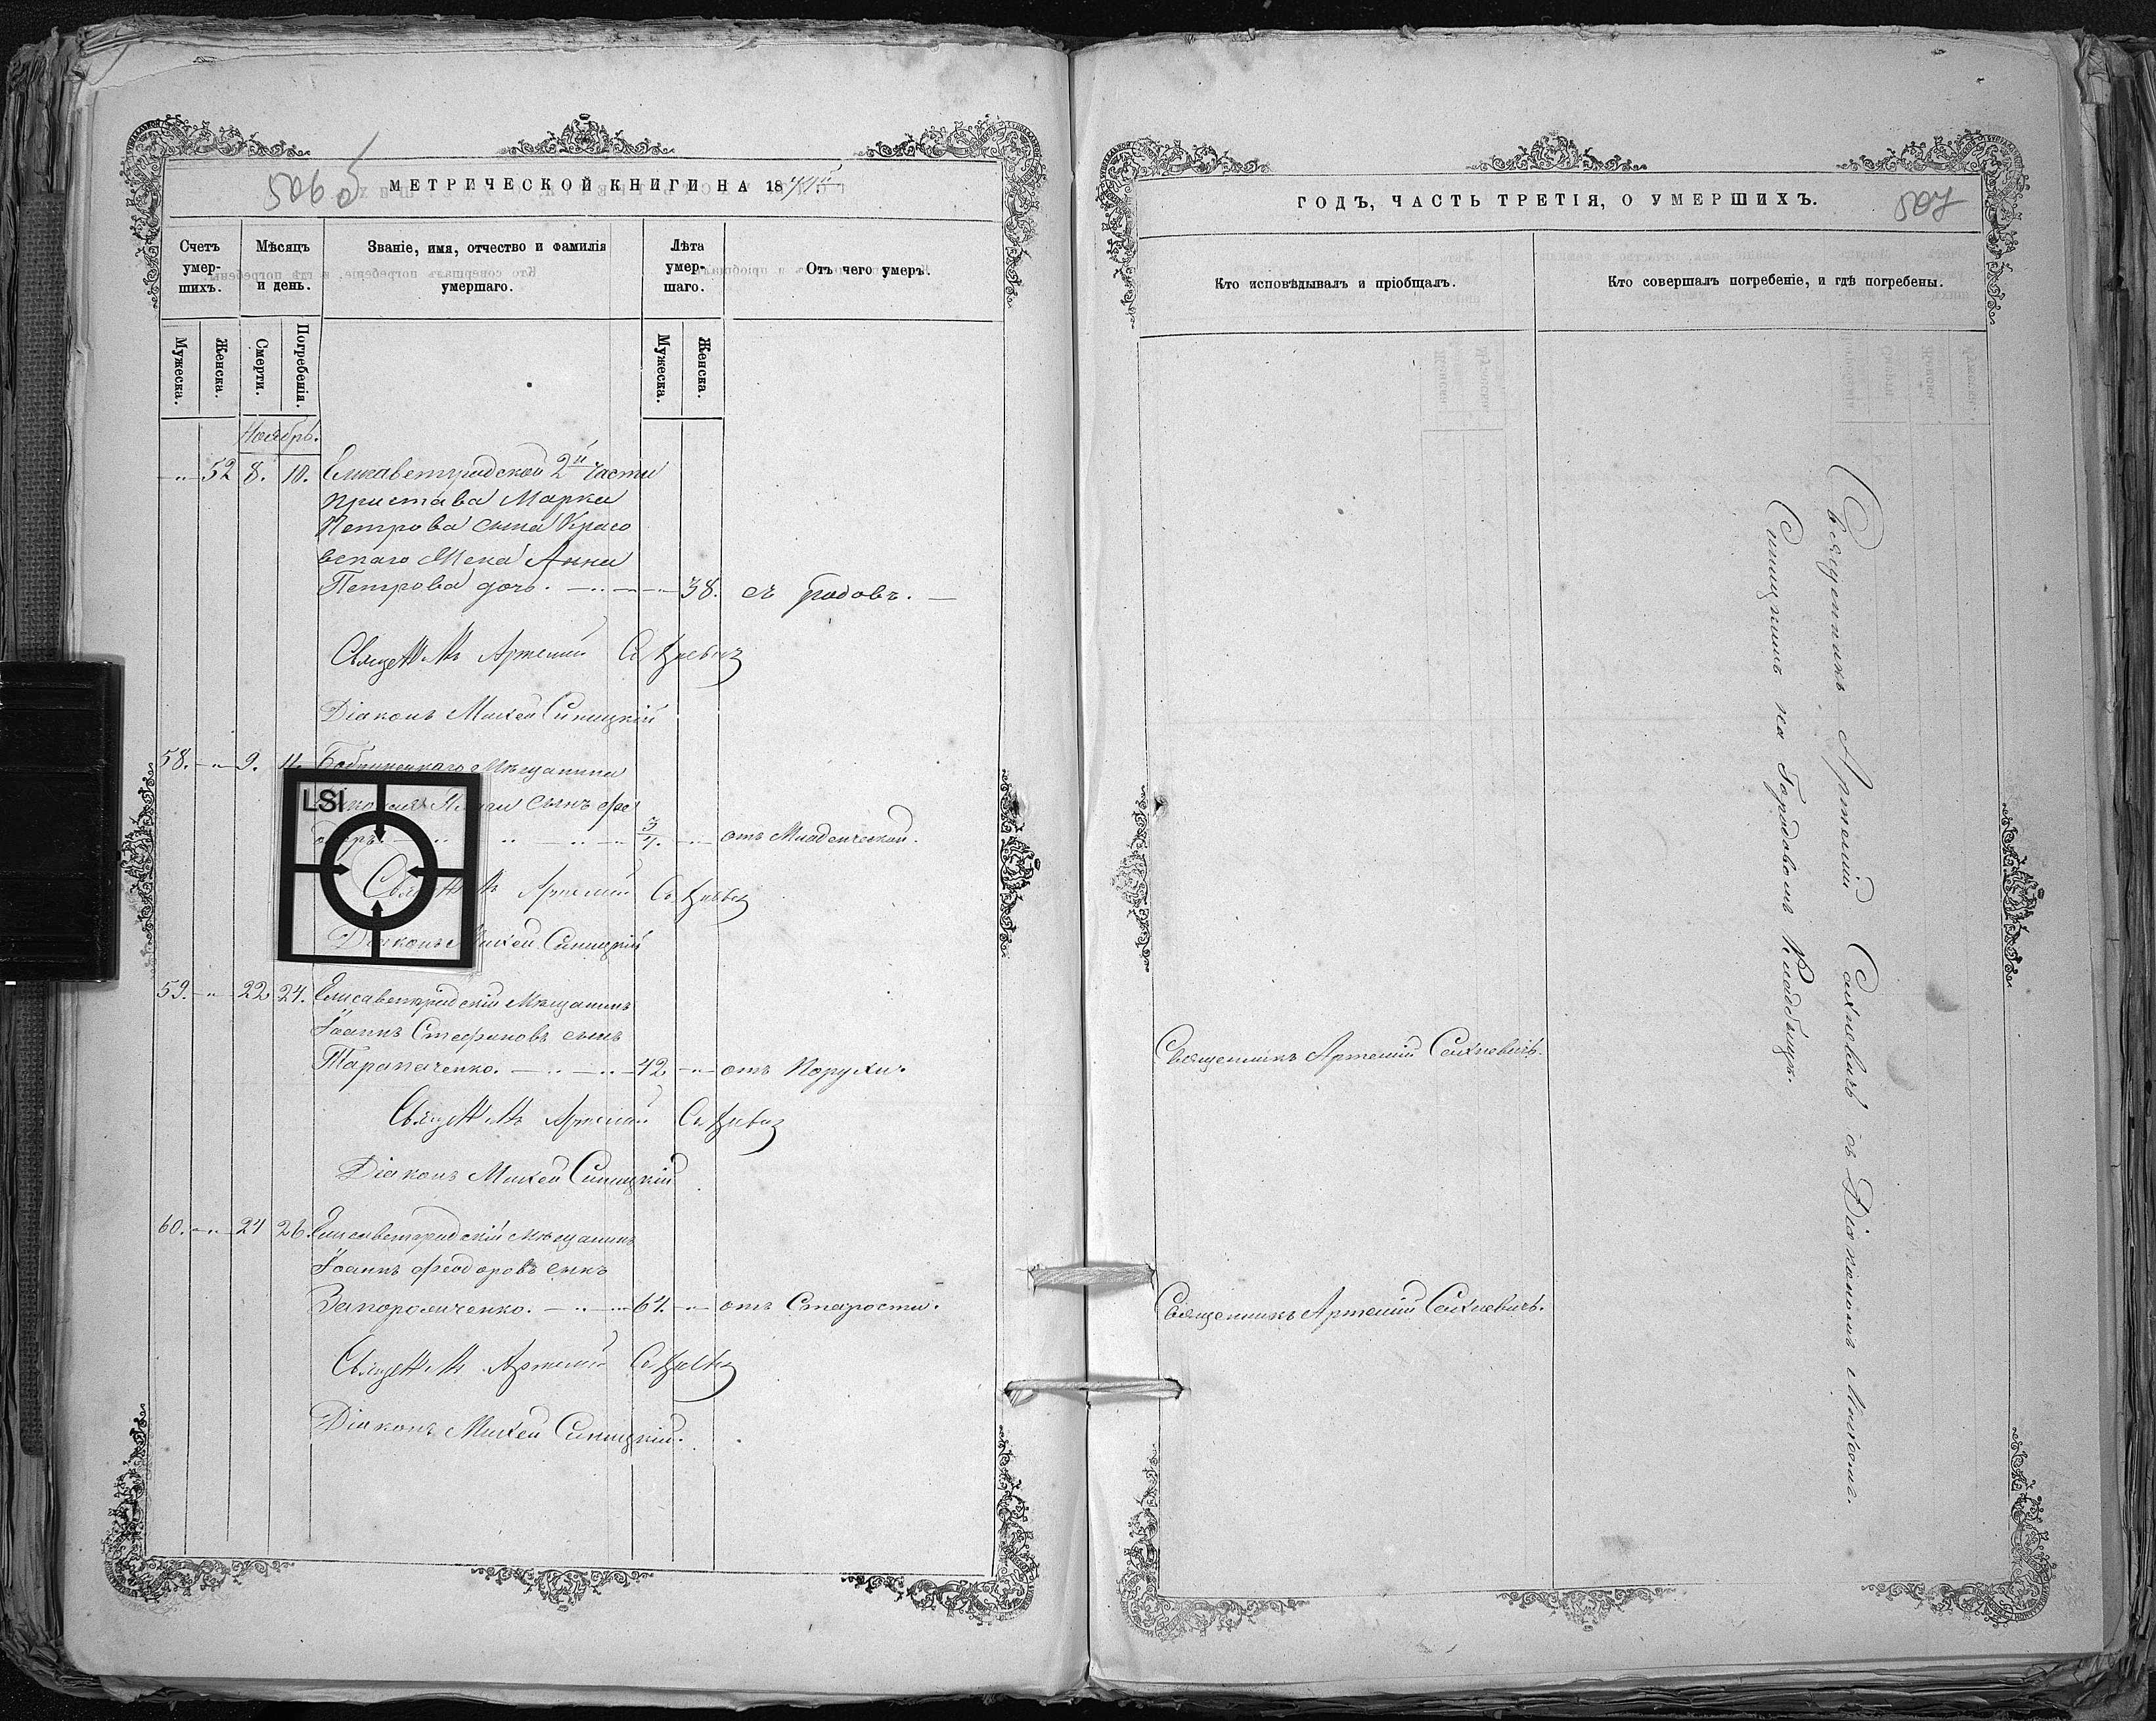 506 об
МЕТРИЧЕСКОЙ КНИГИ НА 18
Счетъ умер-шихъ.
Мѣсяцъ и день.
Званіе, имя, отчество и фамилія умершаго.
Лѣта умер-шаго.
Отъ чего умеръ.
Мужеска.
Женска.
Смерти.
Погребенія.
Мужеска.
Женска.
Ноябрь.
52 8. 10. Елисаветградской 2й Части
Пристава Марка
Петрова сына Красо
вскаго Жена Анна
Петрова дочь. 38. съ родовъ.
Артемий Сахневич
Діаконъ Михей Синицкій
58. 9. 11. Бобринецкаго Мѣщанина
сынъ Фео
3/4. отъ Младенческой.
Артемий Сахневич
Діаконъ Михей Синицкій
59. 22 24. Елисаветградскій Мѣщанинъ
Іоаннъ Стефановъ сынъ
Тарапаченко. 42 отъ Порухи.
Артемий Сахневич
Діаконъ Михей Синицкій
60. 24 26. Елисаветградскій мѣщанинъ
Іоаннъ Феодоровъ сынъ
64. отъ Старости.
Артемий Сахневич
Діаконъ Михей Синицкій.
LSI
ГОДЪ, ЧАСТЬ ТРЕТІЯ, О УМЕРШИХЪ.
507
Кто исповѣдывалъ и пріобщалъ.
Кто совершалъ погребеніе, и гдѣ погребены.
Священникъ Артемій Сахневичъ.
Священникъ Артемій Сахневичъ.
Священникъ Артемій Сахневичъ съ Діакономъ Михеемъ.
Синицкимъ на Городовомъ Кладбищѣ.